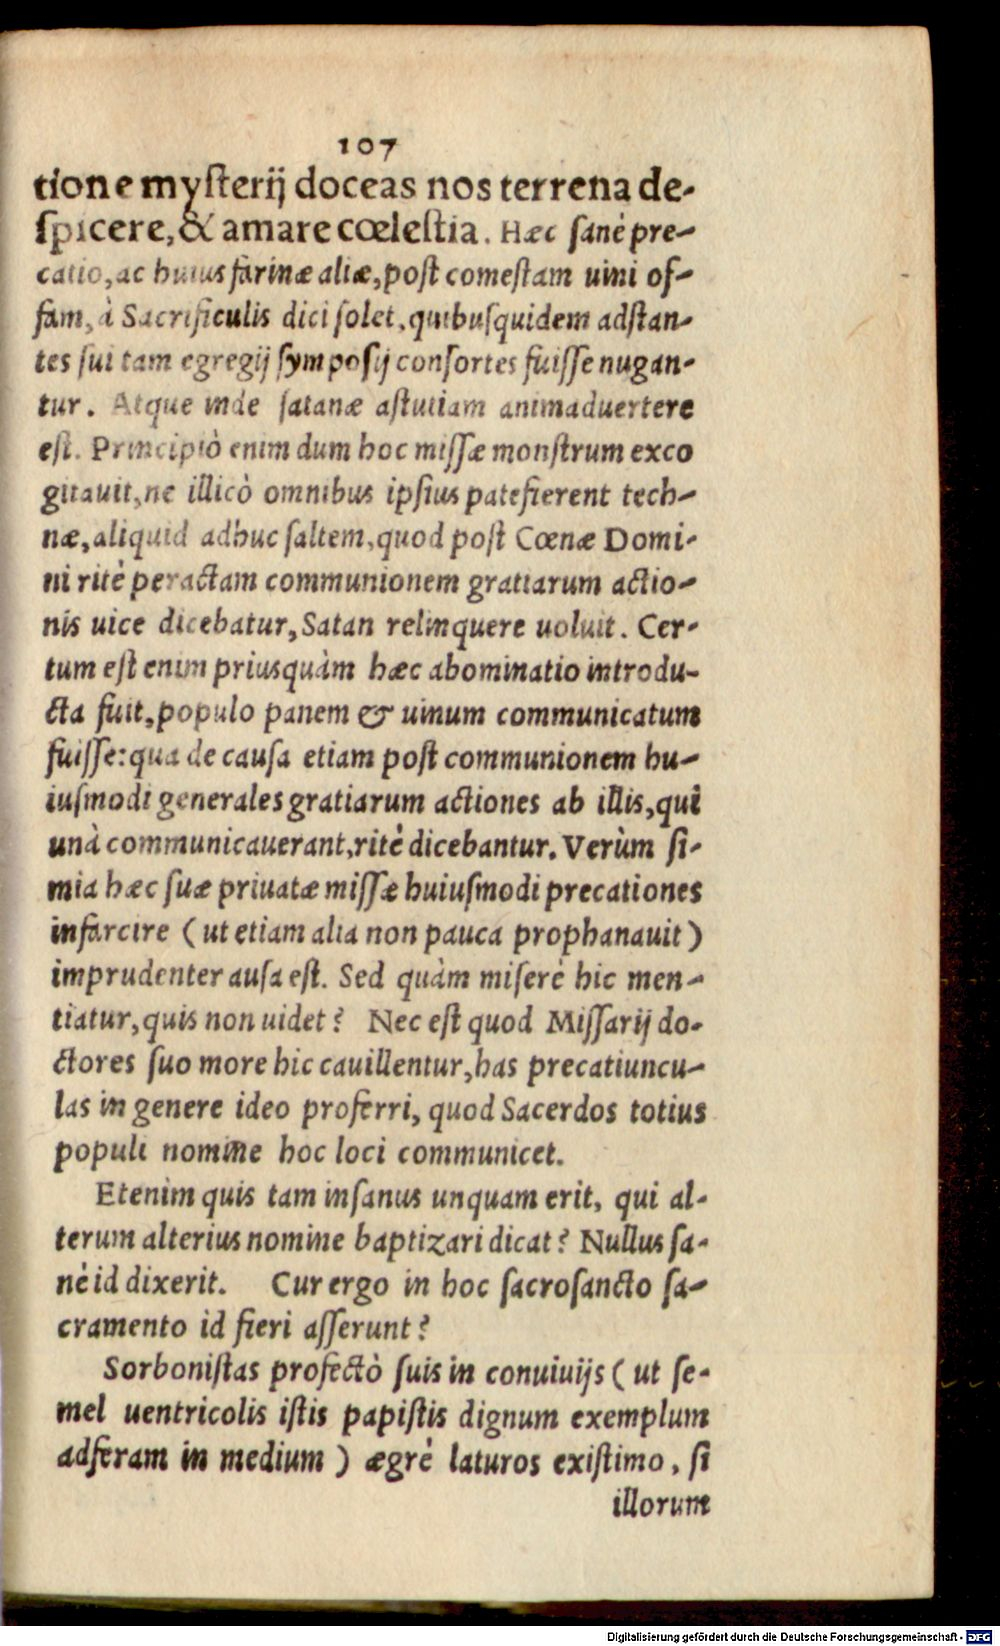 107
tione mysterij doceas nos terrena de-
spicere, & amare cœlestia. Hæc sanè pre-
catio, ac huius farinæ aliæ, post comestam uini of-
fam, à Sacrificulis dici solet, quibusquidem adstan-
tes sui tam egregij symposij consortes fuisse nugan-
tur. Atque inde satanæ astutiam animaduertere
est. Principiò enim dum hoc missæ monstrum exco
gitauit, ne illicò omnibus ipsius patefierent tech-
næ, aliquid adhuc saltem, quod post Cœnæ Domi-
ni ritè peractam communionem gratiarum actio-
nis uice dicebatur, Satan relinquere uoluit. Cer-
tum est enim priusquàm hæc abominatio introdu-
cta fuit, populo panem & uinum communicatum
fuisse: qua de causa etiam post communionem hu-
iusmodi generales gratiarum actiones ab illis, qui
unà communicauerant, ritè dicebantur. Verùm si-
mia hæc suæ priuatæ missæ huiusmodi precationes
infarcire (ut etiam alia non pauca prophanauit)
imprudenter ausa est. Sed quàm miserè hic men-
tiatur, quis non uidet? Nec est quod Missarij do-
ctores suo more hic cauillentur, has precatiuncu-
las in genere ideo proferri, quod Sacerdos totius
populi nomine hoc loci communicet.
Etenim quis tam insanus unquam erit, qui al-
terum alterius nomine baptizari dicat? Nullus sa-
nè id dixerit. Cur ergo in hoc sacrosancto sa-
cramento id fieri asserunt?
Sorbonistas profectò suis in conuiuijs (ut se-
mel uentricolis istis papistis dignum exemplum
adferam in medium) ægrè laturos existimo, si
illorum
Digitalisierung gefördert durch die Deutsche Forschungsgemeinschaft - DFG